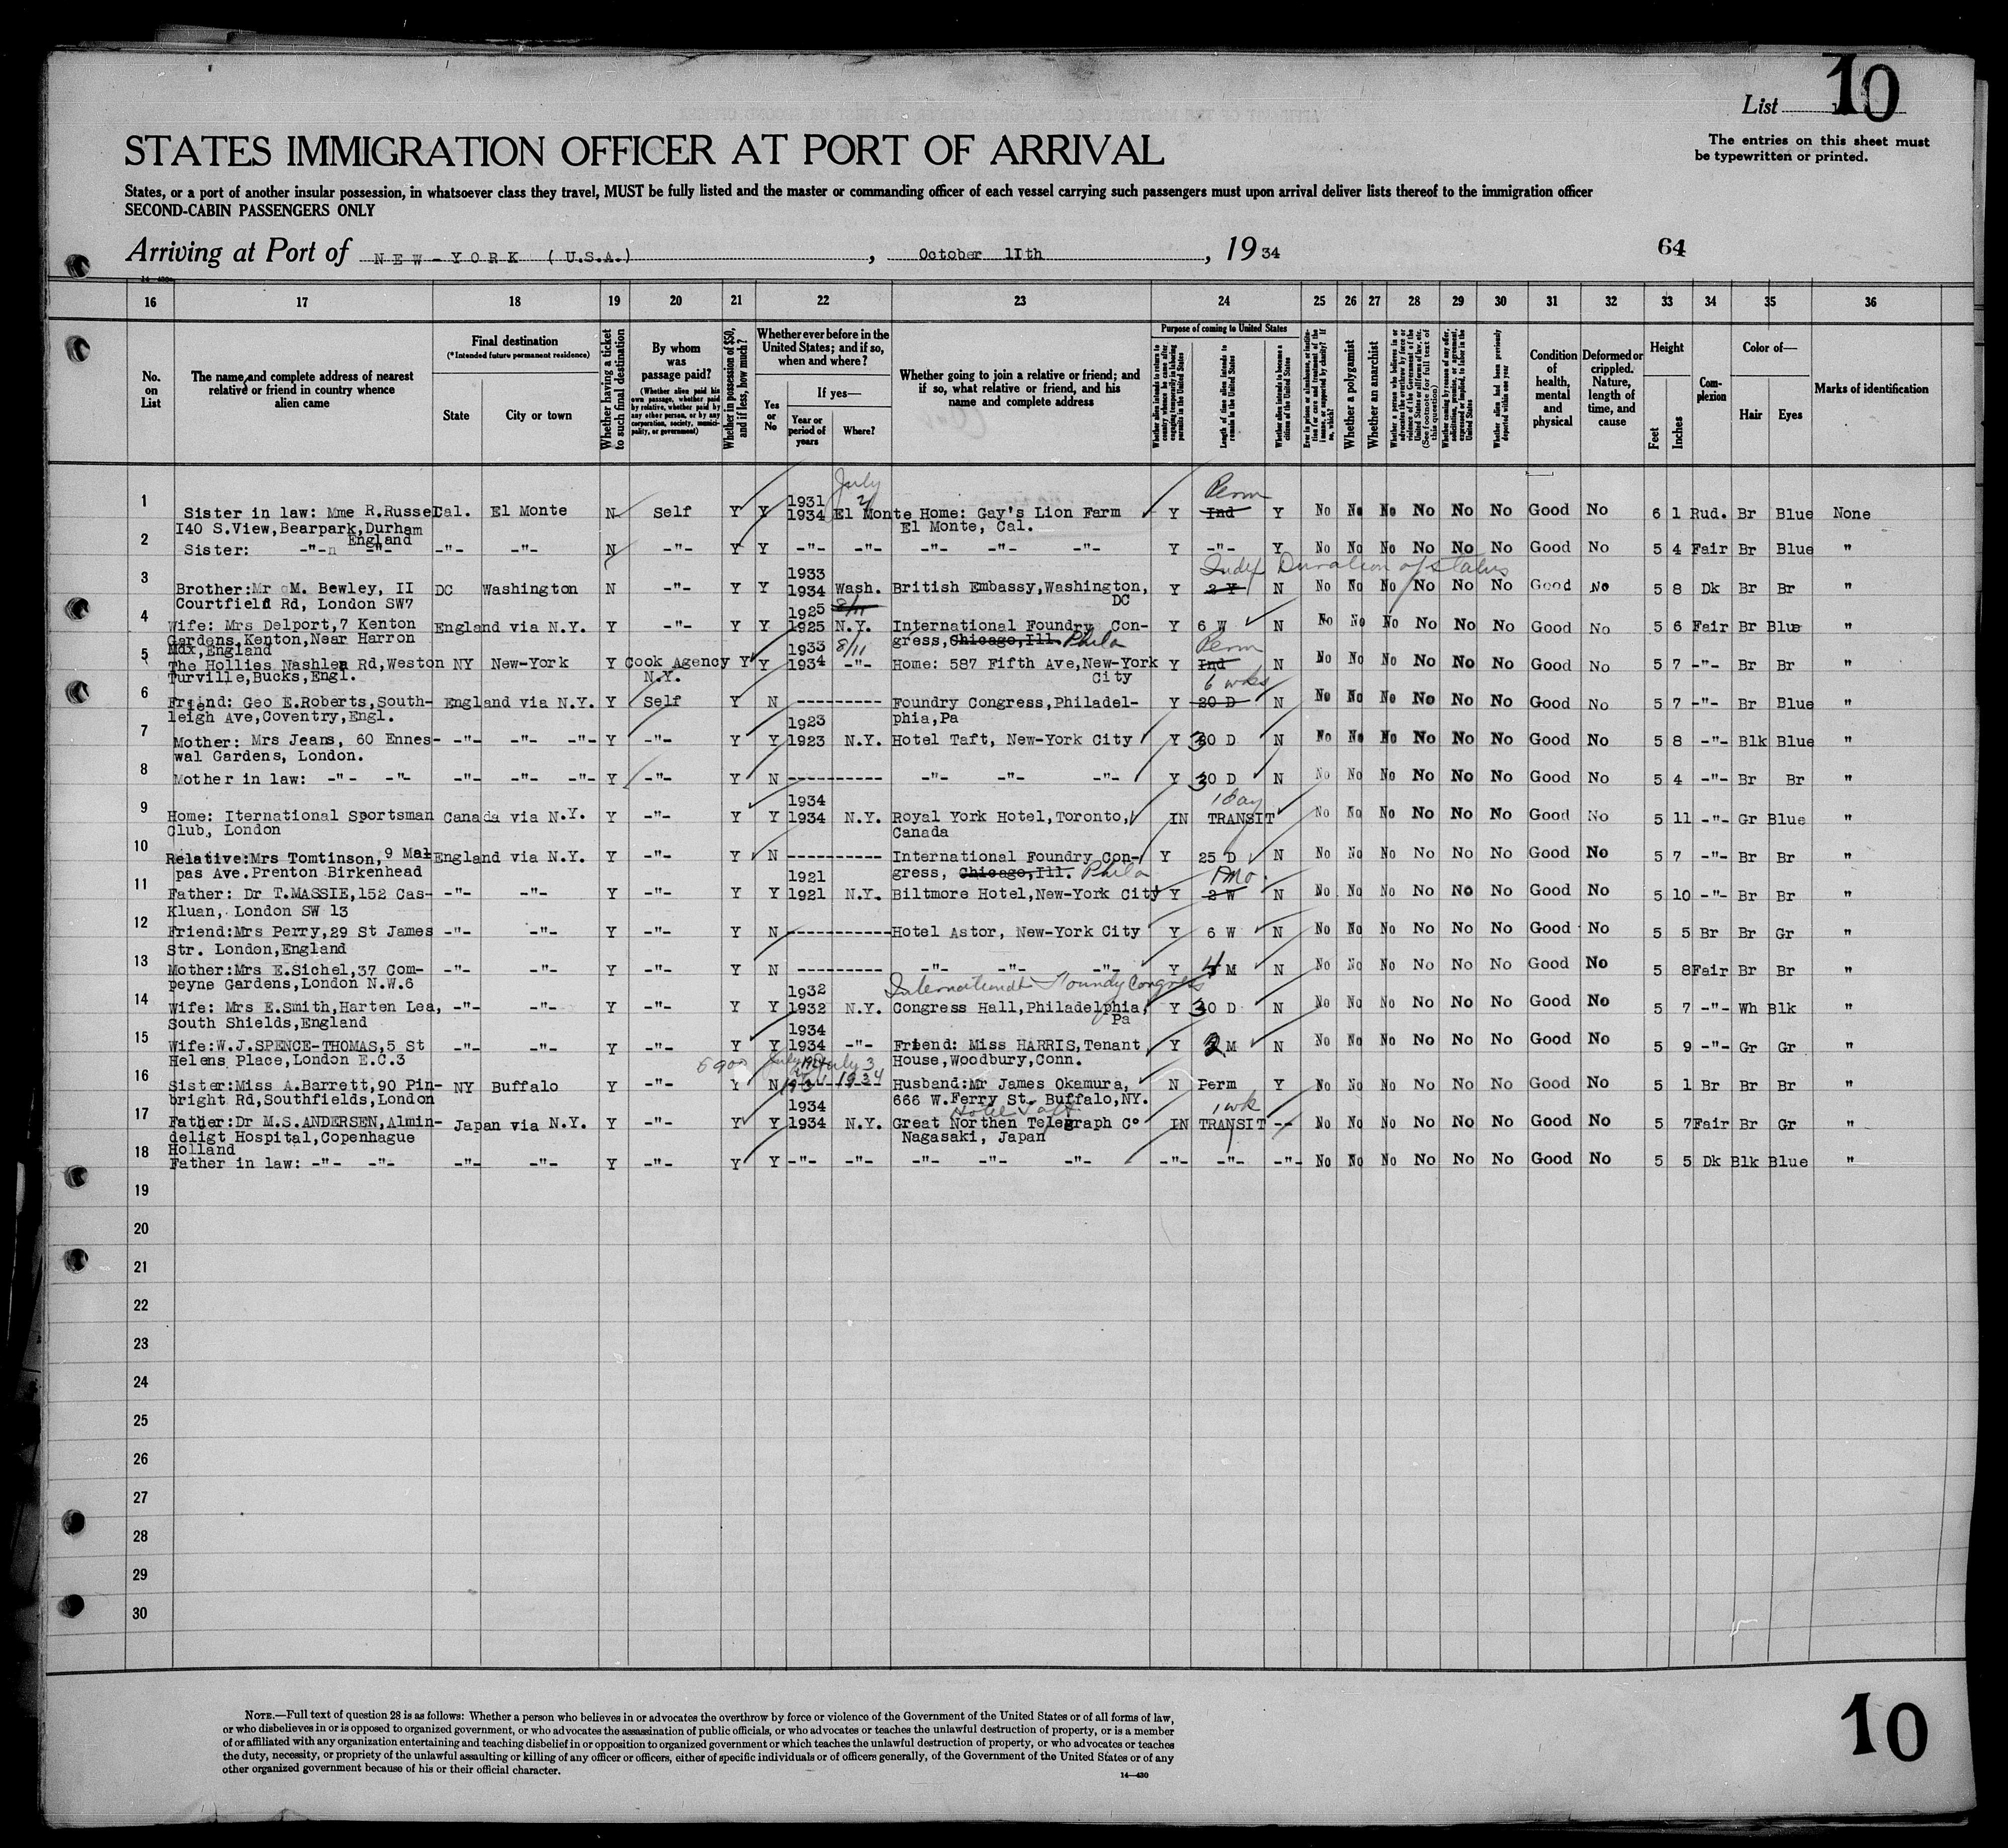 List 10
The entries on this sheet must
be typewritten or printed.
STATES IMMIGRATION OFFICER AT PORT OF ARRIVAL
States, or a port of another insular possession, in whatsoever class they travel, MUST be fully listed and the master or commanding officer of each vessel carrying such passengers must upon arrival deliver lists thereof to the immigration officer
SECOND-CABIN PASSENGERS ONLY
Arriving at Port of NEW-YORK (U.S.A.), October 11th, 1934
64
16 17 18 19 20 21 22 23 24 25 26 27 28 29 30 31 32 33 34 35 36
No. on List
The name and complete address of nearest relative or friend in country whence alien came
Final destination
(*Intended future permanent residence)
State
City or town
Whether having a ticket to such final destination
By whom was passage paid?
(Whether alien paid his own passage, whether paid by relative, whether paid by any other person, or by any corporation, society, municipality, or government)
Whether in possession of $50, and if less, how much?
Whether ever before in the United States; and if so, when and where?
Yes or No
If yes—
Year or period of years
Where?
Whether going to join a relative or friend; and if so, what relative or friend, and his name and complete address
Purpose of coming to United States
Whether alien intends to return to country whence he came after engaging temporarily in laboring pursuits in the United States
Length of time alien intends to remain in the United States
Whether alien intends to become a citizen of the United States
Ever in prison or almshouse, or institution for care and treatment of the insane, or supported by charity? If so, which?
Whether a polygamist
Whether an anarchist
Whether a person who believes in or advocates the overthrow by force or violence of the Government of the United States or all forms of law, etc. (See footnote for full text of this question)
Whether coming by reason of any offer, solicitation, promise, or agreement, expressed or implied, to labor in the United States
Whether alien had been previously deported within one year
Condition of health, mental and physical
Deformed or crippled. Nature, length of time, and cause
Height
Feet
Inches
Complexion
Color of—
Hair
Eyes
Marks of identification
July 2/ Perm
1931
1 Sister in law: Mme R.Russel Cal. El Monte N Self Y Y 1934 El Monte Home: Gay's Lion Farm Y Ind Y No No No No No No Good No 6 1 Rud. Br Blue None
I40 S.View,Bearpark,Durham El Monte, Cal.
England
2 Sister: -"- -"- -"- -"- N -"- Y Y -"- -"- -"- -"- -"- Y -"- Y No No No No No No Good No 5 4 Fair Br Blue "
1933 Indef Duration of Status
3 Brother:Mr M. Bewley, II DC Washington N -"- Y Y 1934 Wash. British Embassy,Washington, Y 2 Y N No No No No No No Good No 5 8 Dk Br Br "
Courtfield Rd, London SW7 DC
1925 8/11
4 Wife: Mrs Delport,7 Kenton England via N.Y. Y -"- Y Y 1925 N.Y. International Foundry Con- Y 6 W N No No No No No No Good No 5 6 Fair Br Blue "
Gardens,Kenton,Near Harron gress,Chicago,Ill. Phila
Mdx,England 1933 8/11 Perm
5 The Hollies Nashlea Rd,Weston NY New-York Y Cook Agency Y Y 1934 -"- Home: 587 Fifth Ave,New-York Y Ind N No No No No No No Good No 5 7 -"- Br Br "
Turville,Bucks,Engl. N.Y. City
6 wks
6 Friend: Geo E.Roberts,South- England via N.Y. Y Self Y N ---------- Foundry Congress,Philadel- Y 20 D N No No No No No No Good No 5 7 -"- Br Blue "
leigh Ave,Coventry,Engl. phia,Pa
1923
7 Mother: Mrs Jeans, 60 Ennes- -"- -"- -"- Y -"- Y Y 1923 N.Y. Hotel Taft, New-York City Y 30 D N No No No No No No Good No 5 8 -"- Blk Blue "
wal Gardens, London.
8 Mother in law: -"- -"- -"- -"- -"- Y -"- Y N ---------- -"- -"- -"- Y 30 D N No No No No No No Good No 5 4 -"- Br Br "
1934 1 day
9 Home: Iternational Sportsman Canada via N.Y. Y -"- Y Y 1934 N.Y. Royal York Hotel,Toronto, IN TRANSIT No No No No No No Good No 5 11 -"- Gr Blue "
Club, London Canada
10 Relative:Mrs Tomtinson,9 Mal- England via N.Y. Y -"- Y N ---------- International Foundry Con- Y 25 D N No No No No No No Good No 5 7 -"- Br Br "
pas Ave.Prenton Birkenhead gress, Chicago,Ill. Phila
1921 1 Mo.
11 Father: Dr T.MASSIE,152 Cas- -"- -"- Y -"- Y Y 1921 N.Y. Biltmore Hotel,New-York City Y 2 W N No No No No No No Good No 5 10 -"- Br Br "
Kluan, London SW 13
12 Friend:Mrs Perry,29 St James -"- -"- Y -"- Y N ---------- Hotel Astor, New-York City Y 6 W N No No No No No No Good No 5 5 Br Br Gr "
Str. London,England
13 Mother:Mrs E.Sichel,37 Com- -"- -"- Y -"- Y N ---------- -"- -"- -"- Y 4 M N No No No No No No Good No 5 8 Fair Br Br "
peyne Gardens,London N.W.6
1932 International Foundy Congress
14 Wife: Mrs E.Smith,Harten Lea, -"- -"- Y -"- Y Y 1932 N.Y. Congress Hall,Philadelphia, Y 30 D N No No No No No No Good No 5 7 -"- Wh Blk "
South Shields,England Pa
1934
15 Wife:W.J.SPENCE-THOMAS,5 St -"- -"- Y -"- Y Y 1934 -"- Friend: Miss HARRIS,Tenant Y 2 M N No No No No No No Good No 5 9 -"- Gr Gr "
Helens Place,London E.C.3 House,Woodbury,Conn.
July 3 1934
16 Sister:Miss A.Barrett,90 Pin- NY Buffalo Y -"- Y N Husband:Mr James Okamura, N Perm Y No No No No No No Good No 5 1 Br Br Br "
bright Rd,Southfields,London 666 W.Ferry St. Buffalo,NY.
1934 Hotel Taft 1 wk
17 Father:Dr M.S.ANDERSEN,Almin- Japan via N.Y. Y -"- Y Y 1934 N.Y. Great Northen Telegraph Co IN TRANSIT -- No No No No No No Good No 5 7 Fair Br Gr "
deligt Hospital,Copenhague Nagasaki, Japan
Holland
18 Father in law: -"- -"- -"- -"- Y -"- Y Y -"- -"- -"- -"- -"- -"- -"- -"- No No No No No No Good No 5 5 Dk Blk Blue "
19
20
21
22
23
24
25
26
27
28
29
30
NOTE.—Full text of question 28 is as follows: Whether a person who believes in or advocates the overthrow by force or violence of the Government of the United States or of all forms of law,
or who disbelieves in or is opposed to organized government, or who advocates the assassination of public officials, or who advocates or teaches the unlawful destruction of property, or is a member
of or affiliated with any organization entertaining and teaching disbelief in or opposition to organized government or which teaches the unlawful destruction of property, or who advocates or teaches
the duty, necessity, or propriety of the unlawful assaulting or killing of any officer or officers, either of specific individuals or of officers generally, of the Government of the United States or of any
other organized government because of his or their official character.
14—430
10